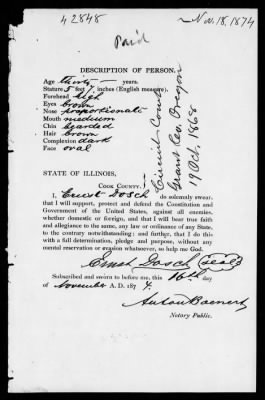 42848
Nov. 18. 1874
Paid
DESCRIPTION OF PERSON.
Age thirty years.
Stature 5 feet 7 inches (English measure).
Forehead high
Eyes brown
Nose proportionate
Mouth medium
Chin bearded
Hair brown
Complexion dark
Face oval
Circuit Court
Grant Co. Oregon
19 Oct. 1868
STATE OF ILLINOIS,
COOK COUNTY.
I, Ernst Dosch do solemnly swear,
that I will support, protect and defend the Constitution and
Government of the United States, against all enemies,
whether domestic or foreign, and that I will bear true faith
and allegiance to the same, any law or ordinance of any State,
to the contrary notwithstanding: and further, that I do this
with a full determination, pledge and purpose, without any
mental reservation or evasion whatsoever, so help me God.
Ernst Dosch (seal)
Subscribed and sworn to before me, this 16th day
of November A. D. 1874.
Anton Boenert
Notary Public.